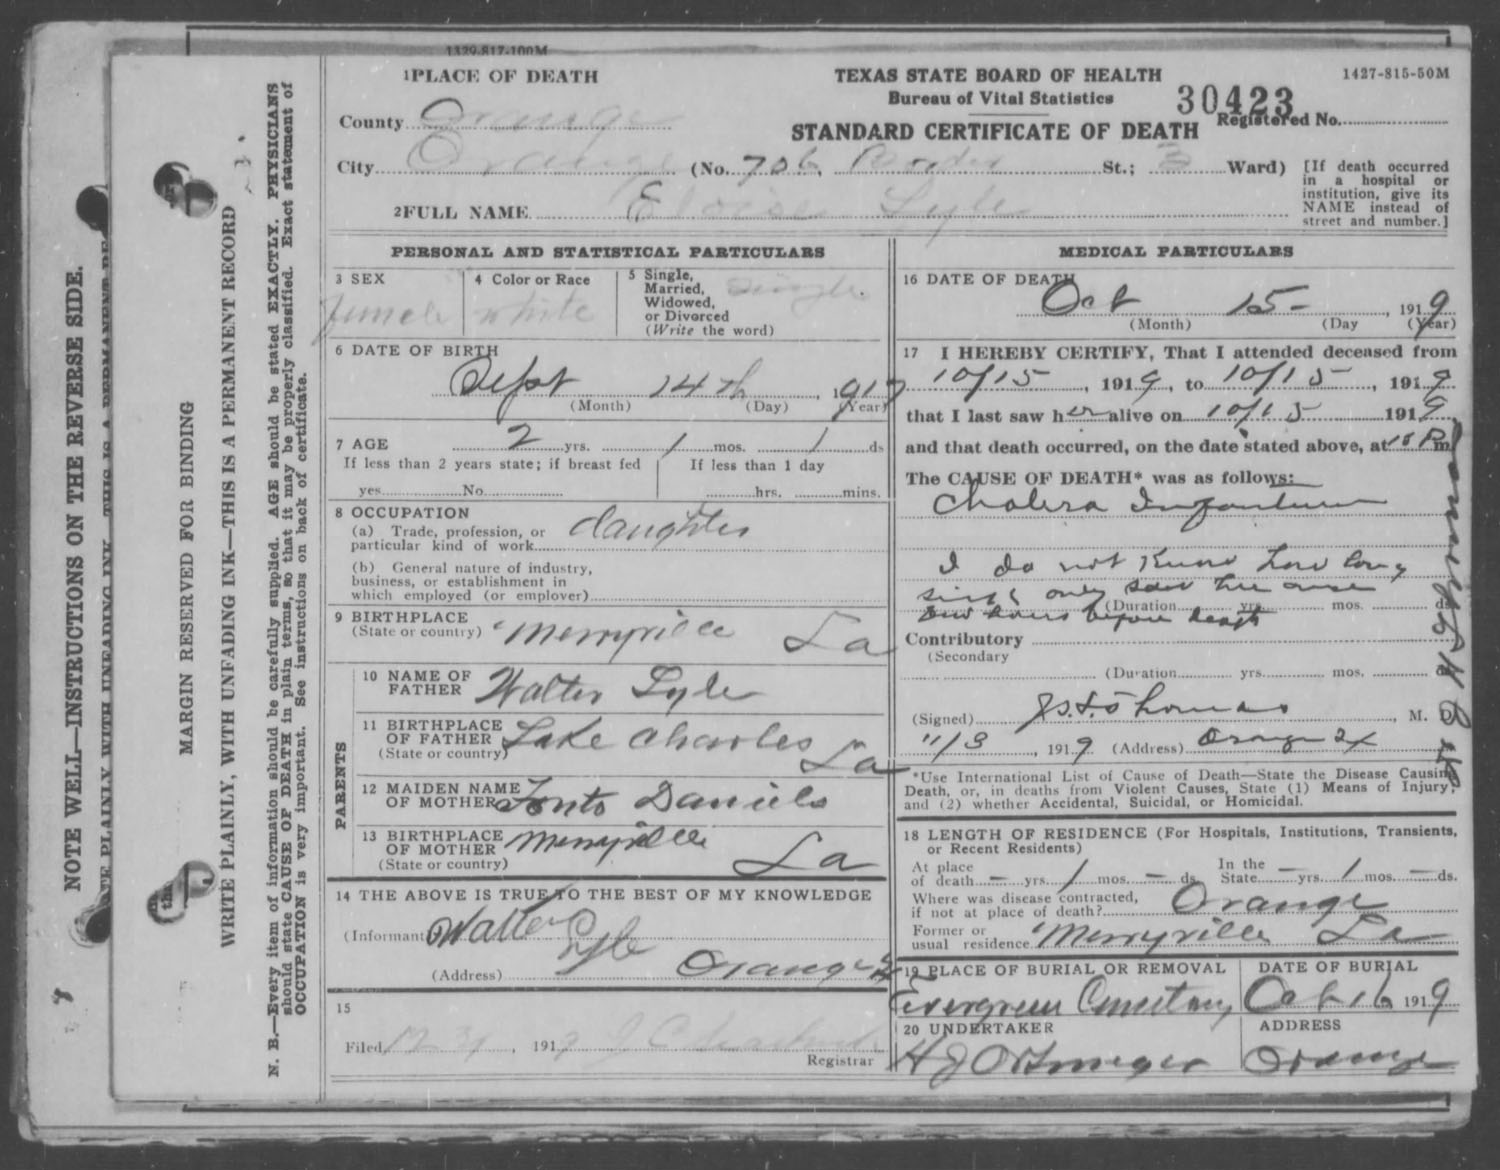 1329-817-100M
1PLACE OF DEATH
TEXAS STATE BOARD OF HEALTH
1427-815-50M
Bureau of Vital Statistics
30423
County Orange
STANDARD CERTIFICATE OF DEATH
Registered No.
City Orange (No. 706, St.; 3 Ward)
[If death occurred
in a hospital or
institution, give its
NAME instead of
street and number.]
2FULL NAME Eloise Lyle
PERSONAL AND STATISTICAL PARTICULARS
3 SEX
female
4 Color or Race
white
5 Single,
Married,
Widowed,
or Divorced
(Write the word)
single
6 DATE OF BIRTH
Sept 14th, 1917
(Month) (Day) (Year)
7 AGE 2 yrs. 1 mos. 1 ds
If less than 2 years state; if breast fed
yes No
If less than 1 day
hrs. mins.
8 OCCUPATION
(a) Trade, profession, or
particular kind of work daughter
(b) General nature of industry,
business, or establishment in
which employed (or employer)
9 BIRTHPLACE
(State or country) Merryville La
PARENTS
10 NAME OF
FATHER Walter Lyle
11 BIRTHPLACE
OF FATHER
(State or country) Lake Charles La
12 MAIDEN NAME
OF MOTHER Daniels
13 BIRTHPLACE
OF MOTHER
(State or country) Merryville La
14 THE ABOVE IS TRUE TO THE BEST OF MY KNOWLEDGE
(Informant) Walter Lyle
(Address) Orange
15
Filed , 1919
Registrar
MEDICAL PARTICULARS
16 DATE OF DEATH
Oct 15- 1919
(Month) (Day (Year)
17 I HEREBY CERTIFY, That I attended deceased from
10/15, 1919, to 10/15, 1919
that I last saw her alive on 10/15 1919
and that death occurred, on the date stated above, at P m
The CAUSE OF DEATH* was as follows:
Cholera Infantum
I do not know how long
sick only saw
few hours before death
(Duration yrs. mos. ds
Contributory
(Secondary
(Duration yrs. mos. ds
(Signed) Thomas, M. D.
11/3, 1919 (Address) Orange Tx
*Use International List of Cause of Death—State the Disease Causing
Death, or, in deaths from Violent Causes, State (1) Means of Injury;
and (2) whether Accidental, Suicidal, or Homicidal.
18 LENGTH OF RESIDENCE (For Hospitals, Institutions, Transients,
or Recent Residents)
At place
of death - yrs. 1 mos. - ds.
In the
State - yrs. 1 mos. - ds.
Where was disease contracted,
if not at place of death? Orange
Former or
usual residence Merryville La
19 PLACE OF BURIAL OR REMOVAL
Evergreen Cemetary
DATE OF BURIAL
Oct 16 1919
20 UNDERTAKER
H J
ADDRESS
Orange
NOTE WELL—INSTRUCTIONS ON THE REVERSE SIDE.
MARGIN RESERVED FOR BINDING
WRITE PLAINLY, WITH UNFADING INK—THIS IS A PERMANENT RECORD
N. B.—Every item of information should be carefully supplied. AGE should be stated EXACTLY. PHYSICIANS
should state CAUSE OF DEATH in plain terms, so that it may be properly classified. Exact statement of
OCCUPATION is very important. See instructions on back of certificate.